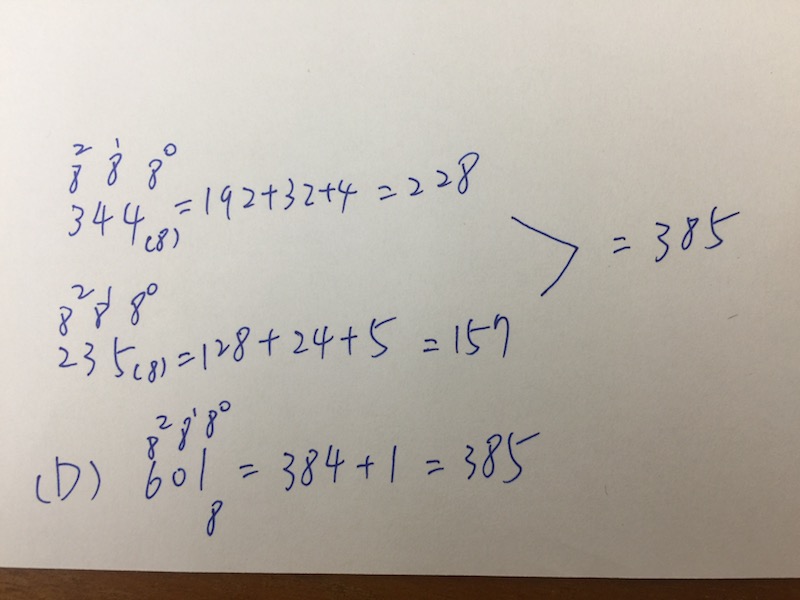 8² 8¹ 8⁰
344₍₈₎ = 192+32+4 = 228
= 385
8² 8¹ 8⁰
235₍₈₎ = 128+24+5 = 157
8² 8¹ 8⁰
(D) 601₈ = 384+1 = 385